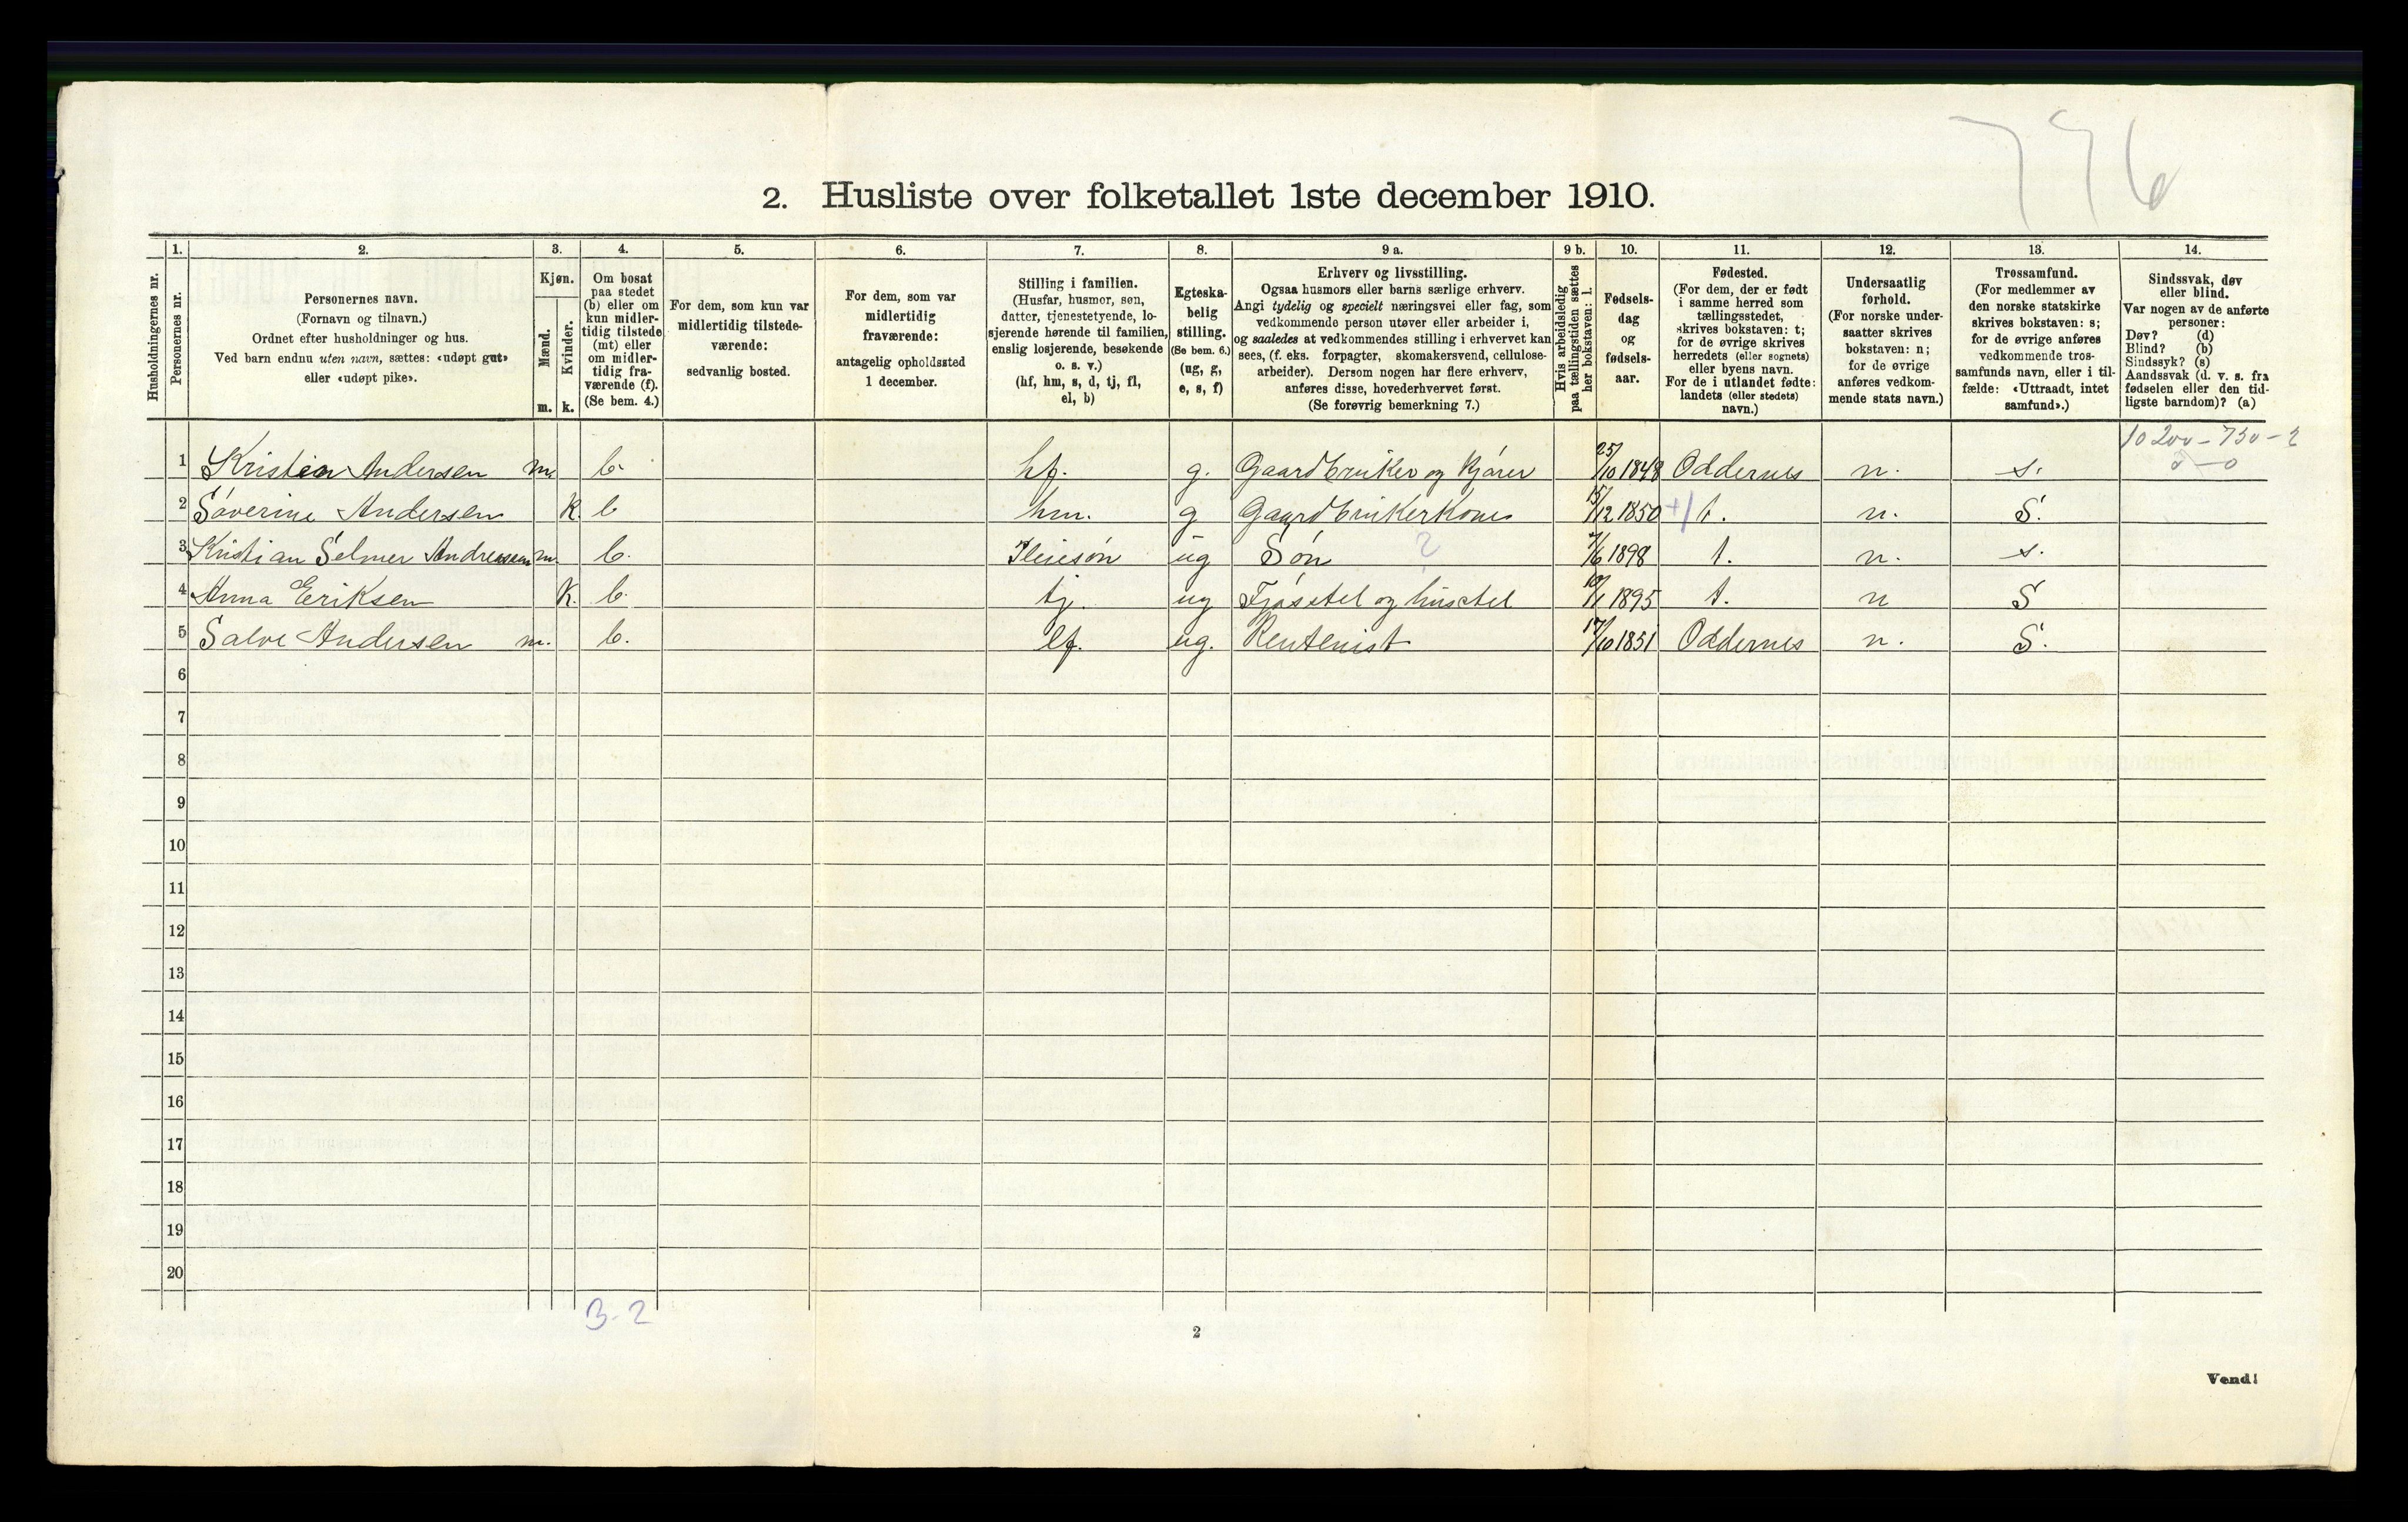 776
2. Husliste over folketallet 1ste december 1910.
Husholdningernes nr.
1. Personernes nr.
2. Personernes navn. (Fornavn og tilnavn.) Ordnet efter husholdninger og hus. Ved barn endnu uten navn, sættes: «udøpt gut» eller «udøpt pike».
3. Kjøn. Mænd. m. Kvinder. k.
4. Om bosat paa stedet (b) eller om kun midler-tidig tilstede (mt) eller om midler-tidig fra-værende (f). (Se bem. 4.)
5. For dem, som kun var midlertidig tilstede-værende: sedvanlig bosted.
6. For dem, som var midlertidig fraværende: antagelig opholdssted 1 december.
7. Stilling i familien. (Husfar, husmor, søn, datter, tjenestetyende, lo-sjerende hørende til familien, enslig losjerende, besøkende o. s. v.) (hf, hm, s, d, tj, fl, el, b)
8. Egteska-belig stilling. (Se bem. 6.) (ug, g, e, s, f)
9 a. Erhverv og livsstilling. Ogsaa husmors eller barns særlige erhverv. Angi tydelig og specielt næringsvei eller fag, som vedkommende person utøver eller arbeider i, og saaledes at vedkommendes stilling i erhvervet kan sees, (f. eks. forpagter, skomakersvend, cellulose-arbeider). Dersom nogen har flere erhverv, anføres disse, hovederhvervet først. (Se forøvrig bemerkning 7.)
9 b. Hvis arbeidsledig paa tællingstiden sættes her bokstaven: l.
10. Fødsels-dag og fødsels-aar.
11. Fødested. (For dem, der er født i samme herred som tællingsstedet, skrives bokstaven: t; for de øvrige skrives herredets (eller sognets) eller byens navn. For de i utlandet fødte: landets (eller stedets) navn.)
12. Undersaatlig forhold. (For norske under-saatter skrives bokstaven: n; for de øvrige anføres vedkom-mende stats navn.)
13. Trossamfund. (For medlemmer av den norske statskirke skrives bokstaven: s; for de øvrige anføres vedkommende tros-samfunds navn, eller i til-fælde: «Uttraadt, intet samfund».)
14. Sindssvak, døv eller blind. Var nogen av de anførte personer: Døv? (d) Blind? (b) Sindssyk? (s) Aandssvak (d. v. s. fra fødselen eller den tid-ligste barndom)? (a)
10200-750-2
1 Kristian Andersen m. b. hf. g. Gaardbruker og Kjører 25/10 1848 Oddernes n. s.
2 Säverine Andersen K. b hm. g Gaardbrukerkone 15/12 1850 t. n. S.
3 Kristian Selmer Andreassen m. b. Pleiesøn ug Søn ? 7/6 1898 t. n. s.
4 Anna Eriksen K. b. tj. ug Fjøsstel og husstel 10/1 1895 t. n S
5 Salve Andersen m. b. ef. ug. Rentenist 17/10 1851 Oddernes n. S.
6
7
8
9
10
11
12
13
14
15
16
17
18
19
20
3-2
2
Vend!